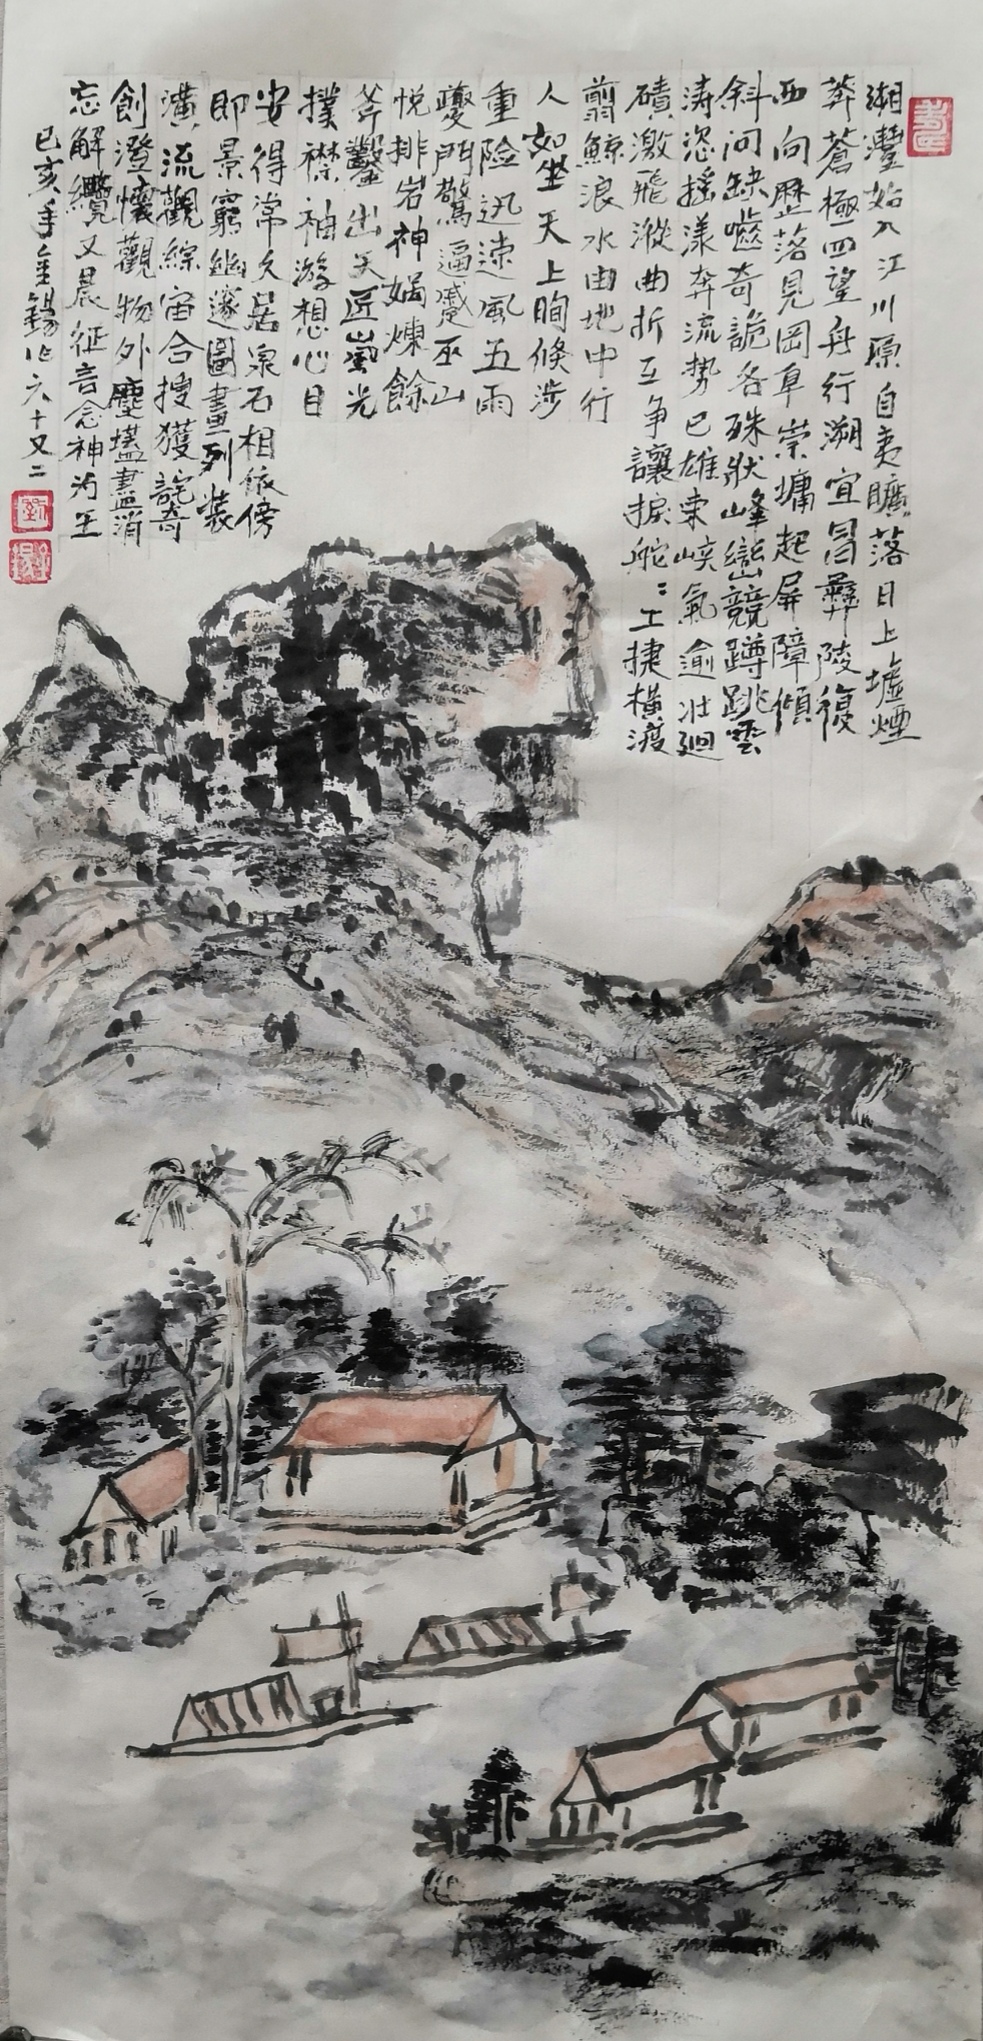 湘灃始入江川原自夷曠落日上墟煙
莽蒼極四望舟行溯宜昌彝陵復
西向歷落見岡阜崇墉起屏障傾
斜问缺嚙奇詭各殊狀峰巒競蹲跳雲
涛恣摇漾奔流势已雄束峡氣逾壮廻
磧激飛漩曲折互争讓捩舵:工捷横渡
翦鯨浪水由地中行
人如坐天上眴倏涉
重险迅速風五雨
夔門驚逼蹙巫山
悦排岩神媧煉餘
斧鑿出天匠嵐光
撲襟袖游想心目
安得常久居泉石相依傍
即景窮幽邃圖畫列裝
潢流觀綜宙合搜獲詫奇
創澄懷觀物外塵壒盡消
忘解纜又晨征吾念神为王
已亥年金錫作六十又二